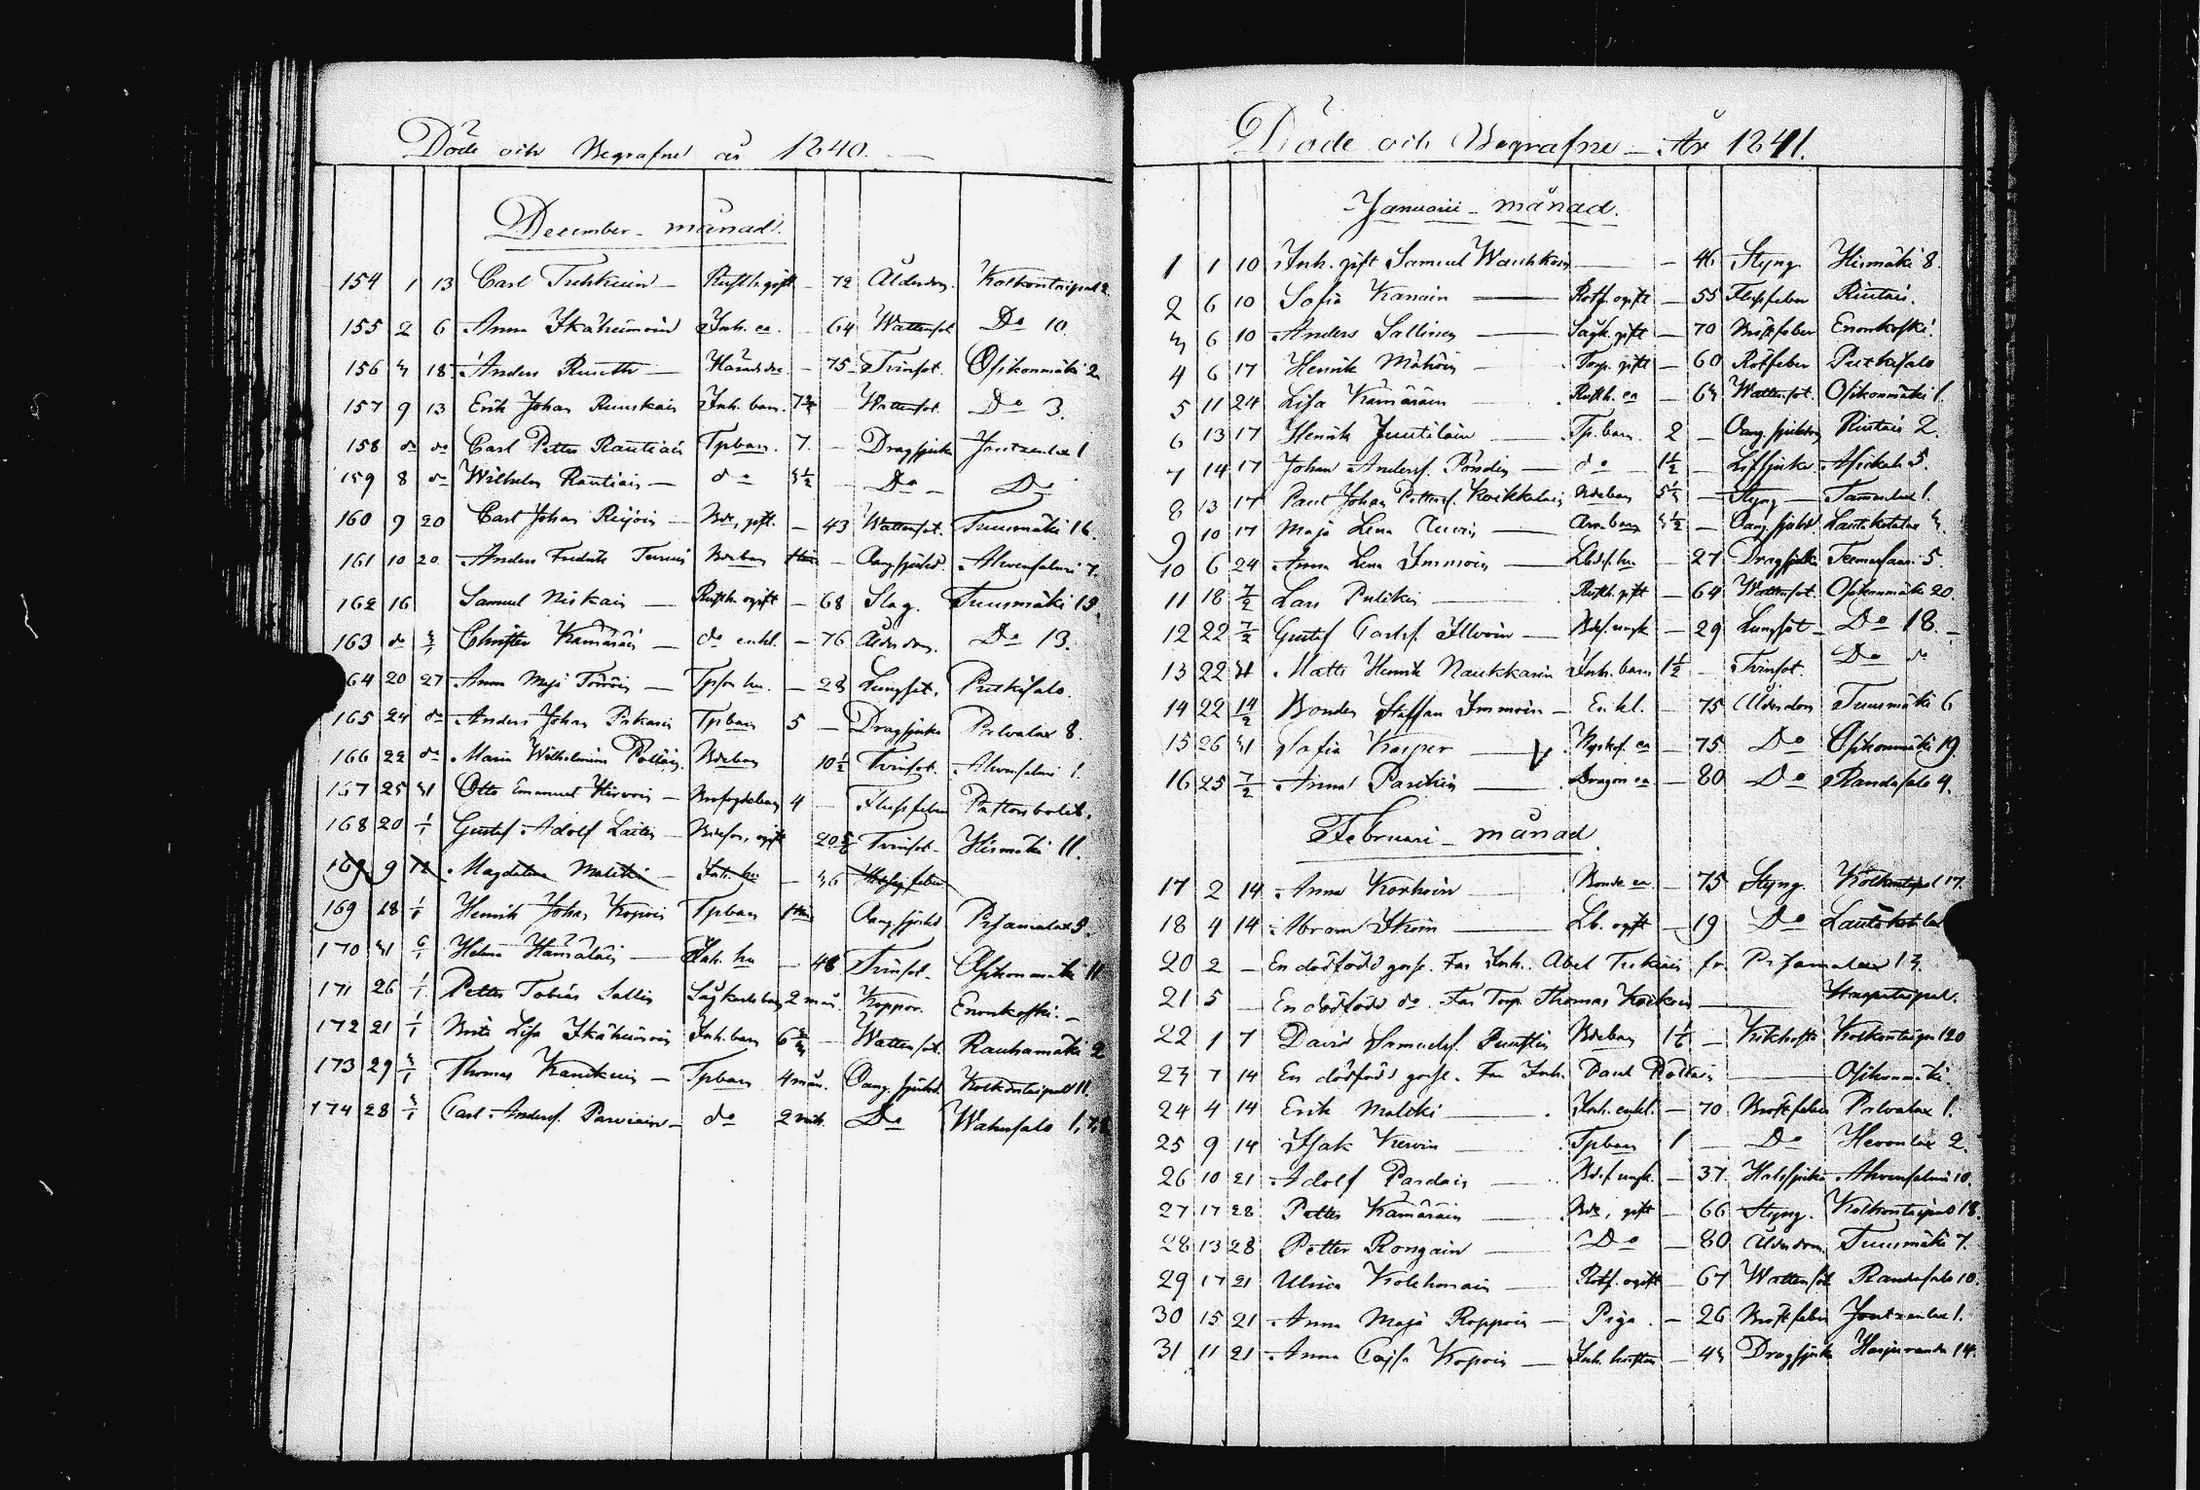 Döde och Begrafne år 1840.
December månad.
154 1 13 Carl Tuhkuin Rusth. gift 72 Ålderdom Kolkontaipal 2
155 2 6 Anna Ikäheimoin Inh. ea 64 Wattensot Do 10
156 3 18 Anders Ruuth 75 Tvinsot Osikonmäki 2
157 9 13 Erik Johan Ruuskain Inh. barn 7 Wattensot Do 3.
158 do do Carl Petter Rautiain Tpbarn 7. Dragsjuka Joutzenlax 1
159 8 do Wilhelm Rautiain do 3½ Do Do
160 9 20 Carl Johan Reijoin Bde, gift 43 Wattensot Tuusmäki 16.
161 10 20 Anders Fredrik Turuin Bdebarn Oang. sjukd. Ahvensalmi 7.
162 16 Samuel Niskain Rusth. ogift 68 Slag. Tuusmäki 19.
163 do 3/1 Christer Kämäräin do enkl. 76 Ålderdom. Do 13.
164 20 27 Anna Maja Torvoin Tpson hu. 28 Lungsot. Putkisalo.
165 24 do Anders Johan Pirkain Tpbarn 5 Dragsjuka Palvalax 8.
166 22 do Maria Wilhelmina Pöllain Bdebarn 10½ Tvinsot. Ahvensalmi 1.
167 25 31 Otto Emanuel Hirvoin 4 Flussfeber
168 20 1/1 Gustaf Adolf Laitin Bdeson, ogift 20 Tvinsot Hirmäki 11.
169 9 12 Magdalena Malitki Inh. hu 36
169 18 1/1 Henrik Johan Kopoin Tpbarn Oang. sjukd Pisamalax 9.
170 31 6/1 Helena Hämäläin Inh. hu 48 Tvinsot Osikonmäki 11
171 26 1/1 Petter Tobias Sallin 2 mån. Koppor. Enonkoski.
172 21 1/1 Brita Lisa Ikäheimoin Inh. barn 6 Wattensot. Rauhamäki 2
173 29 3/1 Thomas Kautkuin Tpbarn 4 mån. Oang. sjukd. Kolkontaipal 11.
174 28 3/1 Carl Andersf. Parviain do 2 Do Wahersalo 1,
Döde och Begrafne År 1841.
Januari månad.
1 1 10 Inh. gift Samuel Wauhkoin 46 Styng. Hirmäki 8
2 6 10 Sofia Kanain Rotf. ogift 55 Flussfeber Rintais.
3 6 10 Anders Sallinen gift 70 Bröstfeber Enonkoski.
4 6 17 Henrik Mähöin Torp. gift 60 Rötfeber Putkisalo
5 11 24 Lisa Kämäräin Rusth. ea 63 Wattensot. Osikonmäki 1.
6 13 17 Henrik Juutilain Tp. barn. 2 Oang. sjukdom Rintais 2.
7 14 17 Johan Andersf. Pöndin do 1½ 5.
8 13 17 Paul Johan Pettersf. Koikkalain Bdebarn 5 Styng 1.
9 10 17 Maja Lena Auvin barn 3½ Oang. sjukd. Lautakotalax 3.
10 6 24 Anna Lena Immoin hu 27 Dragsjuka 5.
11 18 7/2 Lars Pulkin Rusth. gift 64 Wattensot. Osikonmäki 20.
12 22 7/2 Gustaf Carlsf. Illvoin Bdsf. ungk. 29 Lungsot Do 18.
13 22 31 Matts Henrik Naukkarin Inh. barn 1½ Tvinsot. Do do
14 22 14/2 Bonden Staffan Immoin Enkl. 75 Ålderdom Tuusmäki 6
15 26 31 Sofia Kasper ea 75 Do Osikonmäki 19.
16 25 7/2 Anna Paukin Dragon ea 80 Do Randasalo 4.
Februari månad.
17 2 14 Anna Korhoin Bonde ea 75 Styng. Kolkontaipal 17.
18 4 14 Abram Ikoin Lb. ogift 19 Do Lautakotalax
20 2 En dödfödd gosse. Far Inh. Abel Tiikain fr. Pisamalax 13.
21 5 En dödfödd do. Far Torp. Thomas Koikoin
22 1 7 David Samuelsf. Puustin Bdebarn 1 Kikhosta Kolkontaipal 20
23 7 14 En dödfödd gosse. Far Inh. Paul Pöllain Osikonmäki.
24 4 14 Erik Malitki Inh. enkl. 70 Bröstfeber Palvalax 1.
25 9 14 Isak Kuroin Tpbarn 1 Do Heronlax 2.
26 10 21 Adolf Pardain Bdsf. ungk. 37. Halssjuka Ahvensalmi 10.
27 17 28 Petter Kämäräin Bde, gift 66 Styng. Kolkontaipal 18.
28 13 28 Petter Rongain Do 80 Ålderdom. Tuusmäki 7.
29 17 21 Ulrica Kolehmain Rotf. ogift 67 Wattensot Randasalo 10.
30 15 21 Anna Maja Roppoin Piga. 26 Bröstfeber Joutzenlax 1.
31 11 21 Anna Cajsa Kopoin Inh. hustru 43 Dragsjuka Harjuranda 14.